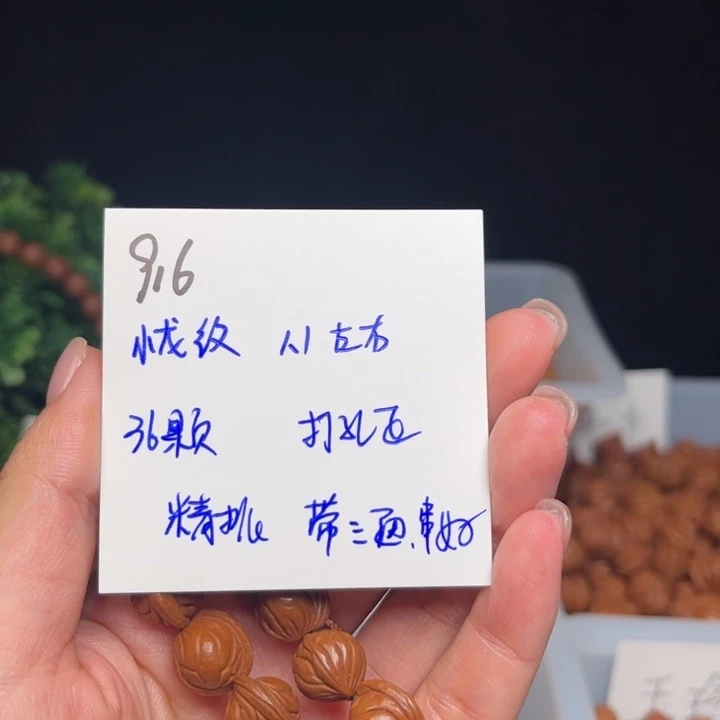 9.6
小龙纹 1.1左右
36颗 打孔正
精挑 带三通、串好